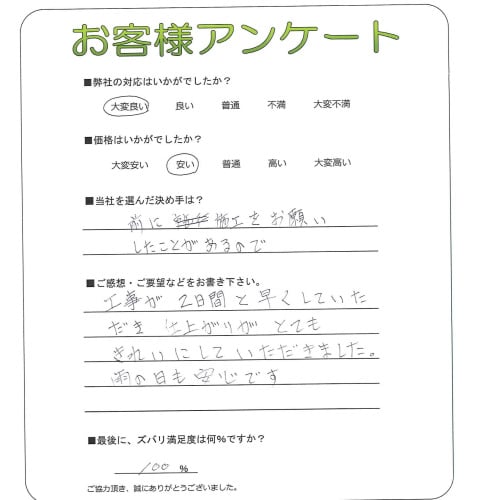 お客様アンケート
■弊社の対応はいかがでしたか?
大変良い 良い 普通 不満 大変不満
■価格はいかがでしたか?
大変安い 安い 普通 高い 大変高い
■当社を選んだ決め手は?
前に 施工をお願い
したことがあるので
■ご感想・ご要望などをお書き下さい。
工事が 2日間と早くしていた
だき 仕上がりが とても
きれいにしていただきました。
雨の日も安心です
■最後に、ズバリ満足度は何%ですか?
100 %
ご協力頂き、誠にありがとうございました。